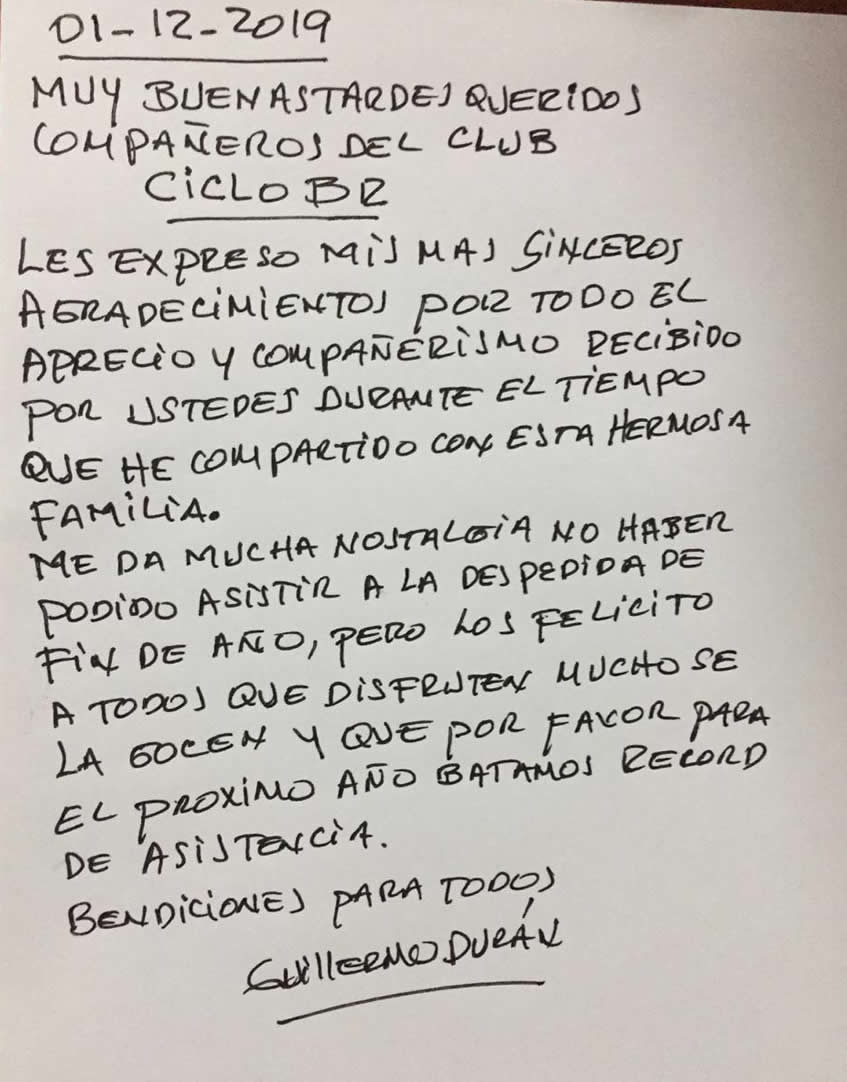 01-12-2019
MUY BUENAS TARDES QUERIDOS
COMPAÑEROS DEL CLUB
CICLO BR
LES EXPRESO MIS MAS SINCEROS
AGRADECIMIENTOS POR TODO EL
APRECIO Y COMPAÑERISMO RECIBIDO
POR USTEDES DURANTE EL TIEMPO
QUE HE COMPARTIDO CON ESTA HERMOSA
FAMILIA.
ME DA MUCHA NOSTALGIA NO HABER
PODIDO ASISTIR A LA DESPEDIDA DE
FIN DE AÑO, PERO LOS FELICITO
A TODOS QUE DISFRUTEN MUCHO SE
LA GOCEN Y QUE POR FAVOR PARA
EL PROXIMO AÑO BATAMOS RECORD
DE ASISTENCIA.
BENDICIONES PARA TODOS
GUILLERMO DURÁN